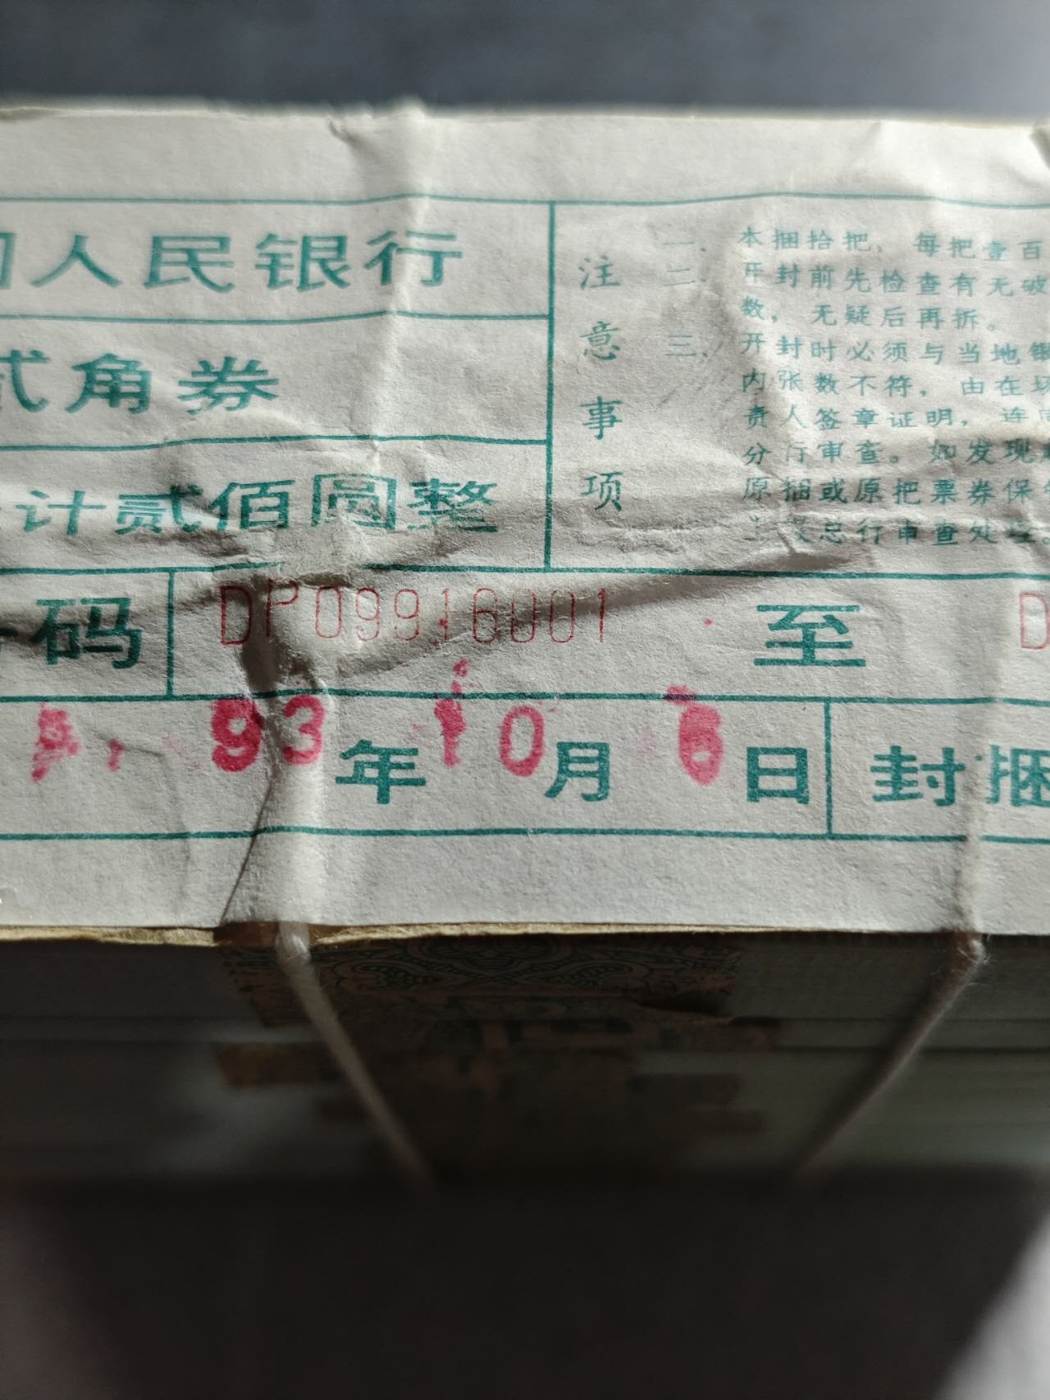 人民银行
贰角券
计贰佰圆整
码 DP09916001 至 D
93年10月6日 封捆
注意事项
一. 本捆拾把，每把壹百
二. 开封前先检查有无破
数，无疑后再拆。
三. 开封时必须与当地银
内张数不符，由在场
责人签章证明，连同
分行审查。如发现
原捆或原把票券保
总行审查处理。